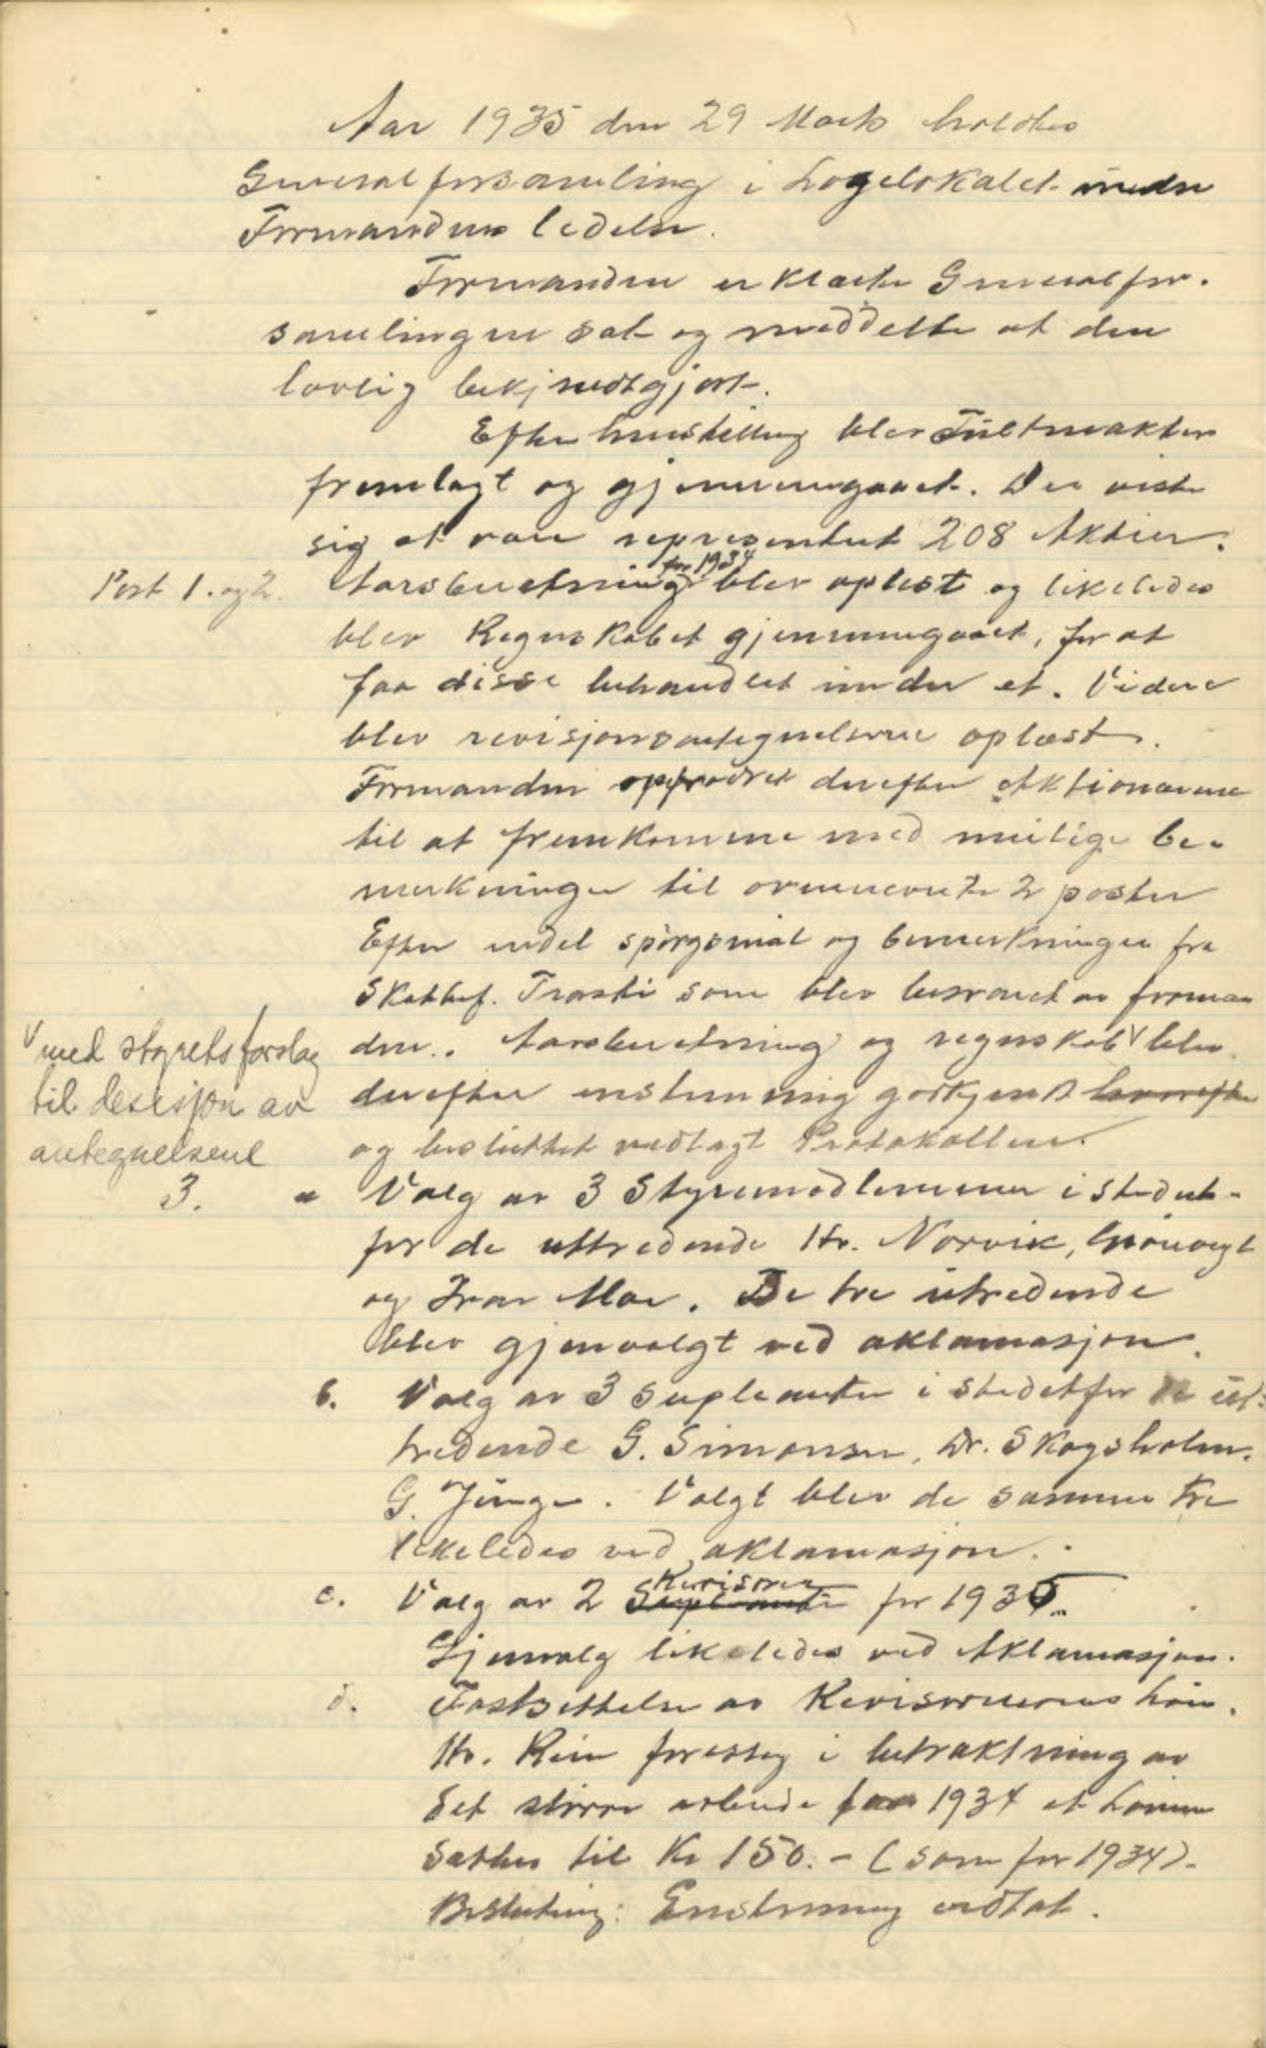 Aar 1935 den 29 Marts holdtes
Generalforsamling i Logelokalet under
Formandens ledelse.
Formanden erklærte Generalfor-
samlingen sat og meddelte at den
lovlig bekjendtgjort.
Efter henstilling blev Fuldmakter
fremlagt og gjennemgaaet. Der viste
sig at være representert 208 Aktier.
Post 1. og 2. Aarsberetning for 1934 blev oplest og likeledes
blev Regnskabet gjennemgaaet, for at
faa disse behandlet under et. Videre
blev revisjonsantegnelserne oplæst.
Formanden opfordret derefter Aktionærerne
til at fremkomme med mulige be-
merkninger til ovennevnte 2 poster
Efter endel spørgsmål og bemerkninger fra
Skattef. som blev besvaret av forman
den. Aarsberetning og regnskab V blev
V med styrets forslag
til desisjon av
antegnelsene
derefter enstemmig godkjent hvorefter
og besluttet vedlagt Protokollen.
3. a Valg av 3 Styremedlemmer i stedet-
for de uttredende Hr. Norvik, Grönvigt
og Ivar Moe. De tre utredende
blev gjenvalgt ved aklamasjon.
b. Valg av 3 Supleanter i stedetfor de ut-
tredende G. Simonsen, Dr. Skogsholm,
G. Jünge. Valgt blev de samme tre
likeledes ved aklamasjon.
c. Valg av 2 Supleanter Revisorer for 1935.
Gjenvalg likeledes ved Aklamasjon.
d. Fastsettelse av Revisorernes løn.
Hr. Rein foreslog i betraktning av
det större arbeide for 1934 at Lönnen
sættes til Kr 150.- (som for 1934).
Beslutning: Enstemmig vedtat.